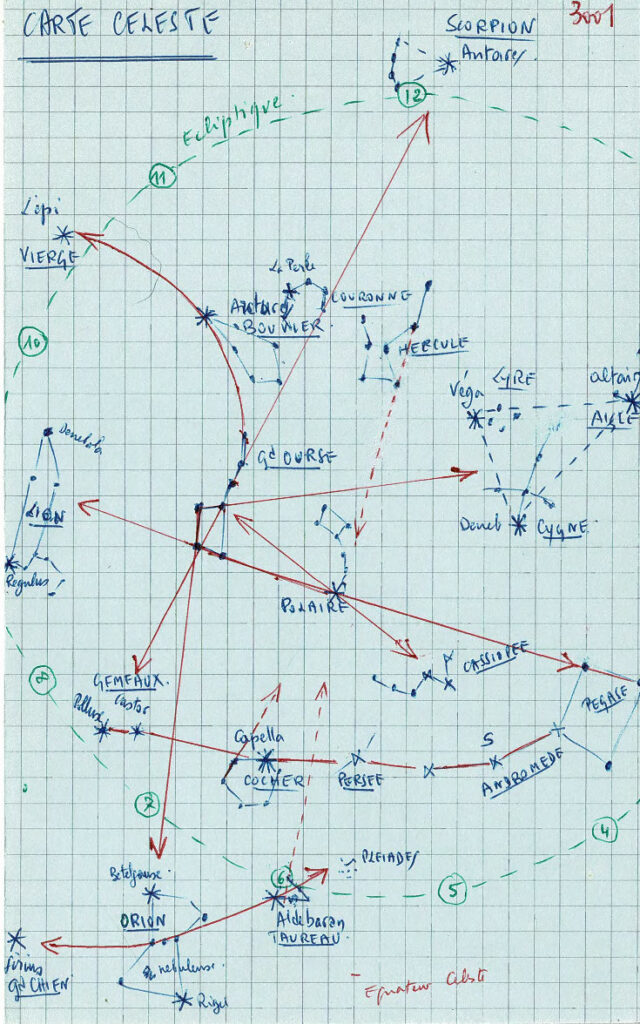 CARTE CELESTE
3001
SCORPION
Antares
12
Ecliptique
11
L'epi
VIERGE
La Perle
COURONNE
BOUVIER
HERCULE
10
Véga
LYRE
altair
AIGLE
Denebola
Gd OURSE
LION
Deneb
CYGNE
Regulus
POLAIRE
CASSIOPEE
8
GEMEAUX
Castor
Pollux
PEGASE
Capella
COCHER
PERSEE
S
ANDROMEDE
7
4
PLEIADES
6
5
Betelgeuse
Aldebaran
TAUREAU
ORION
Sirius
Gd CHIEN
nebuleuse
Rigel
Equateur Celeste